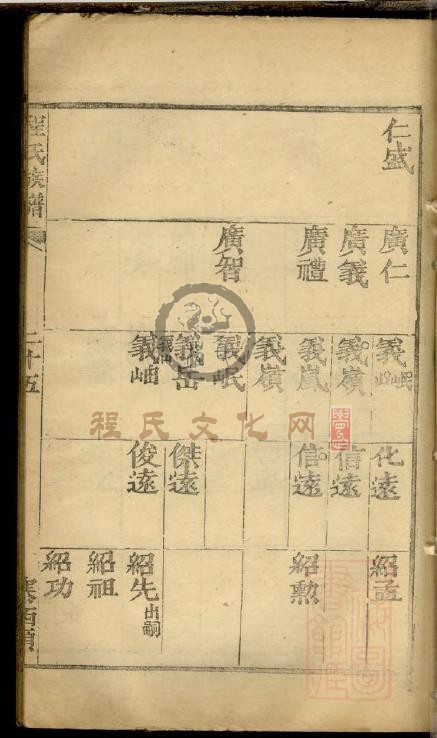 仁盛
廣仁 廣義 廣禮 廣智
義岷 義嶺 義嵐 義嶺 義岷 義岳 義岫
化遠 信遠 信遠 傑遠 俊遠
紹孟 紹勲 紹先出嗣 紹祖 紹功
程氏族譜
二十五
程氏文化网